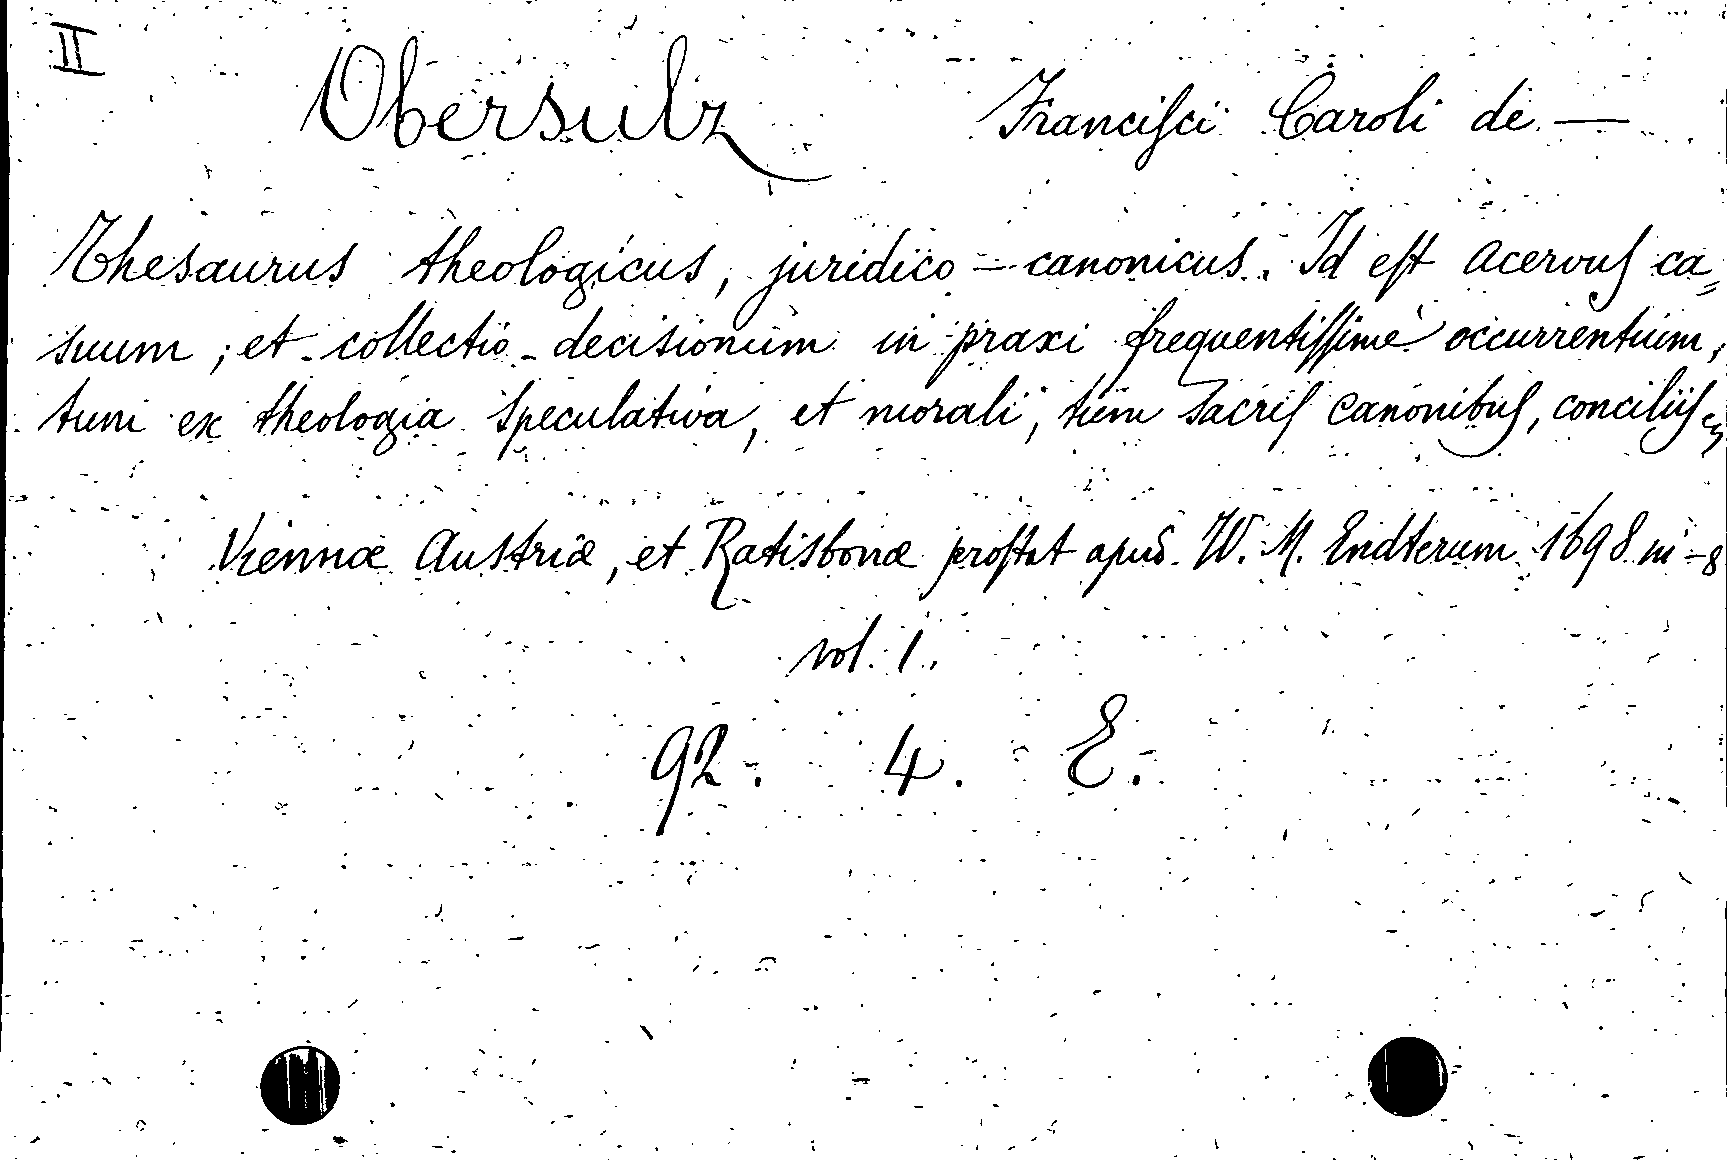 II
Obersulz Franciſci Caroli de —
Thesaurus theologicus, juridico - canonicus. Id eſt acervuſ ca=
suum, et collectio decisionum in praxi frequentiſſime occurrentium,
tum ex theologia speculativa, et morali, tum sacriſ canonibuſ, conciliiſ
Viennæ Austriæ, et Ratisbonæ proſtat apud W. M. Endterum 1698 in-8
vol. 1.
92. 4. E.